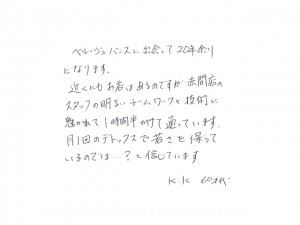 ベル・ジュバンスに出会って20年余り
になります。
近くにもお店はあるのですが赤間店の
スタッフの明るいチームワークと技術に
魅かれて1時間半かけて通っています。
月1回のデトックスで若さを保って
いるのでは…?と信じています。
K.K 60才代